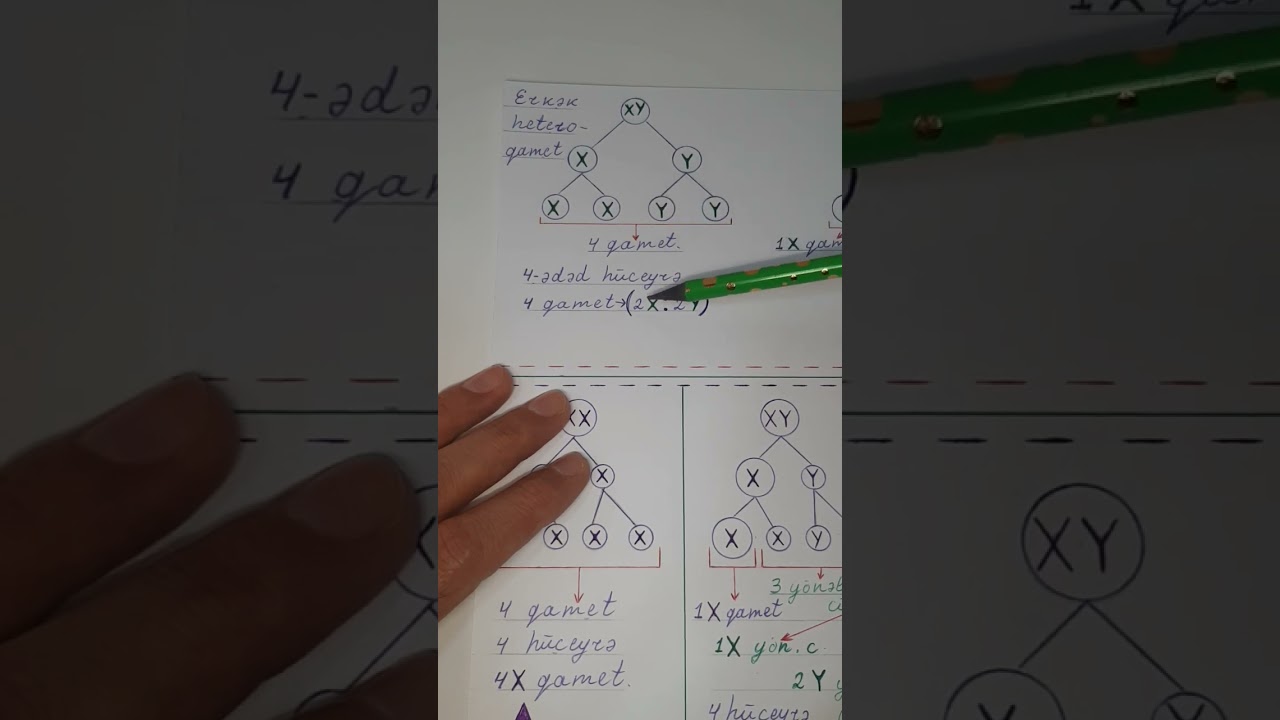 Erkək
hetero-
gamet
XY
X Y
X X Y Y
4 gamet.
4-ədəd hüceyrə
4 gamet→(2X.2Y)
1X
XX
X
X X X
4 gamet
4 hüceyrə
4X gamet.
XY
X Y
X X Y
1X gamet
3
1X yön.c.
2Y
4 hüceyrə